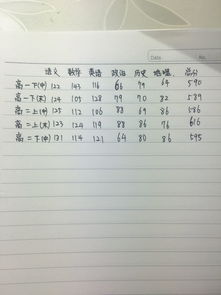 Date
No.
语文 数学 英语 政治 历史 地理 总分
高一下(中) 122 143 116 66 79 64 590
高一下(末) 124 105 128 79 70 82 589
高二上(中) 125 112 106 88 69 86 586
高二上(末) 123 124 119 88 86 76 616
高二下(中) 131 114 121 64 80 86 595